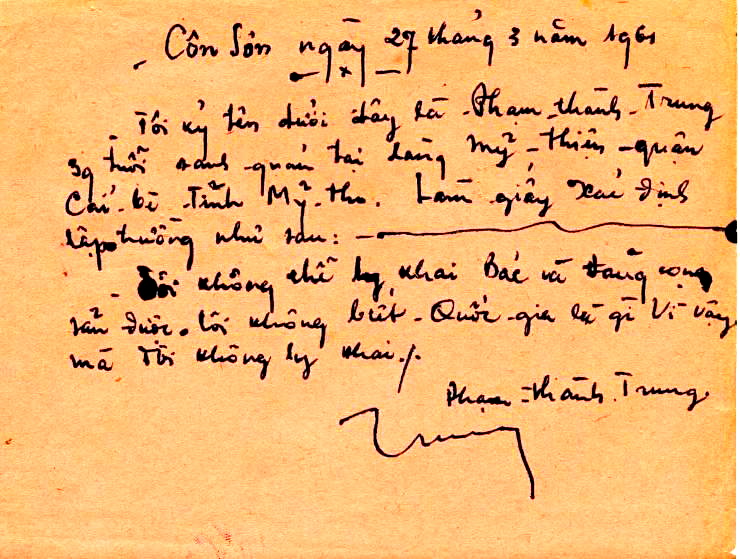 Côn Sơn ngày 27 tháng 3 năm 1961
Tôi ký tên dưới đây là Phạm-thành-Trung
39 tuổi sanh quán tại làng Mỹ-Thiện-quận
Cái-bè Tỉnh Mỹ-tho. Làm giấy xác định
lập trường như sau:
- Tôi không thể ly khai Bác và Đảng cộng
sản được. Tôi không biết Quốc-gia là gì vì vậy
mà Tôi không ly khai./.
Phạm-thành-Trung.
Trung